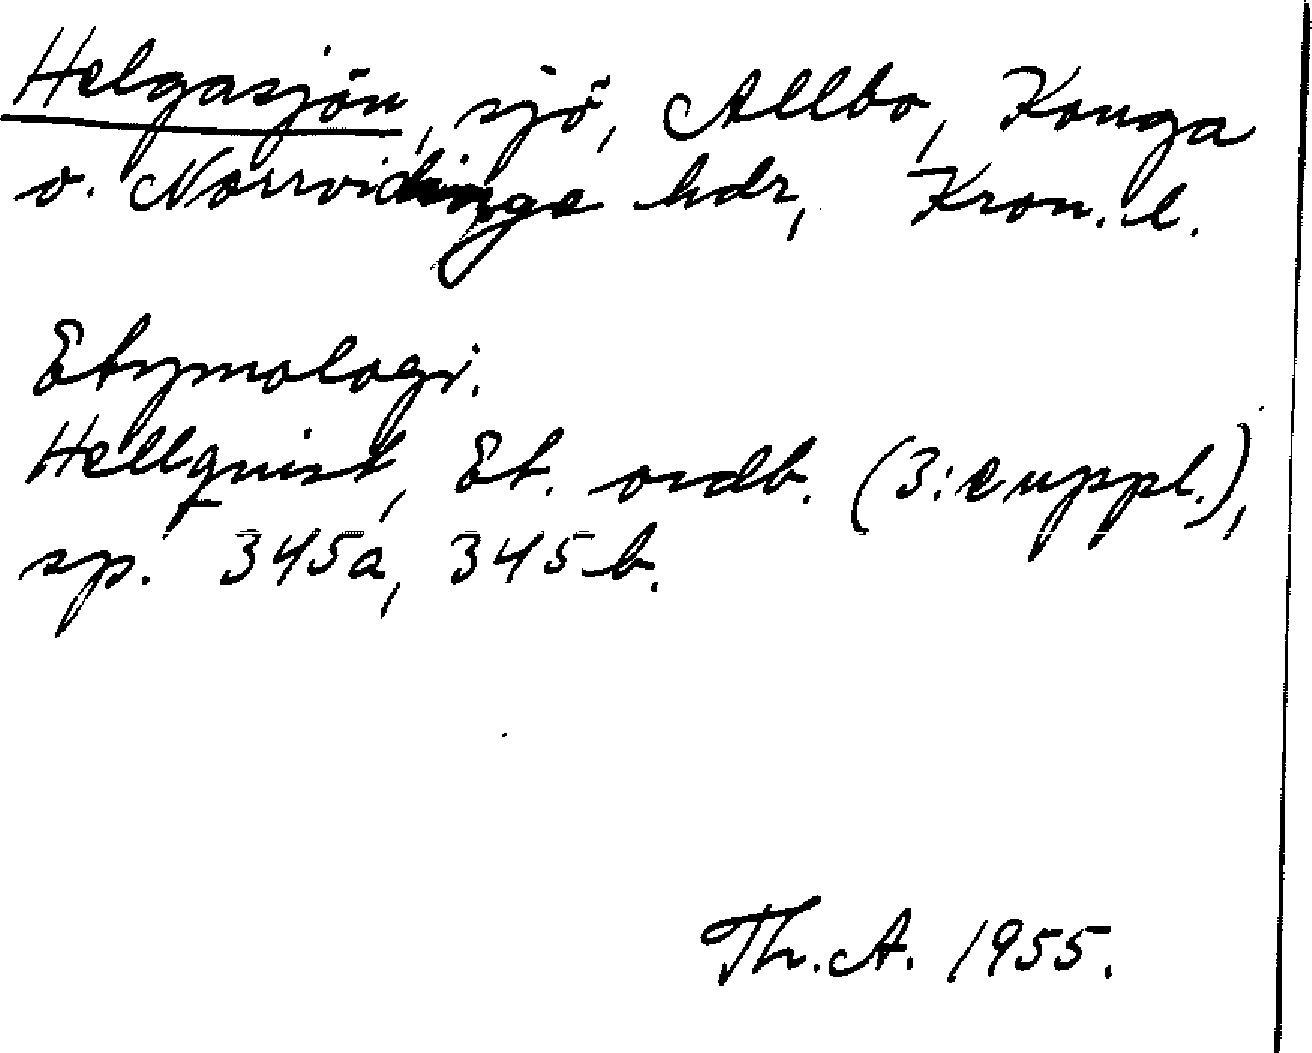 Helgasjön, sjö, Allbo, Konga
o. Norrvidinge hdr, Kron. l.
Etymologi.
Hellquist, Et. ordb. (3:e uppl.),
sp. 345a, 345b.
Th. A. 1955.